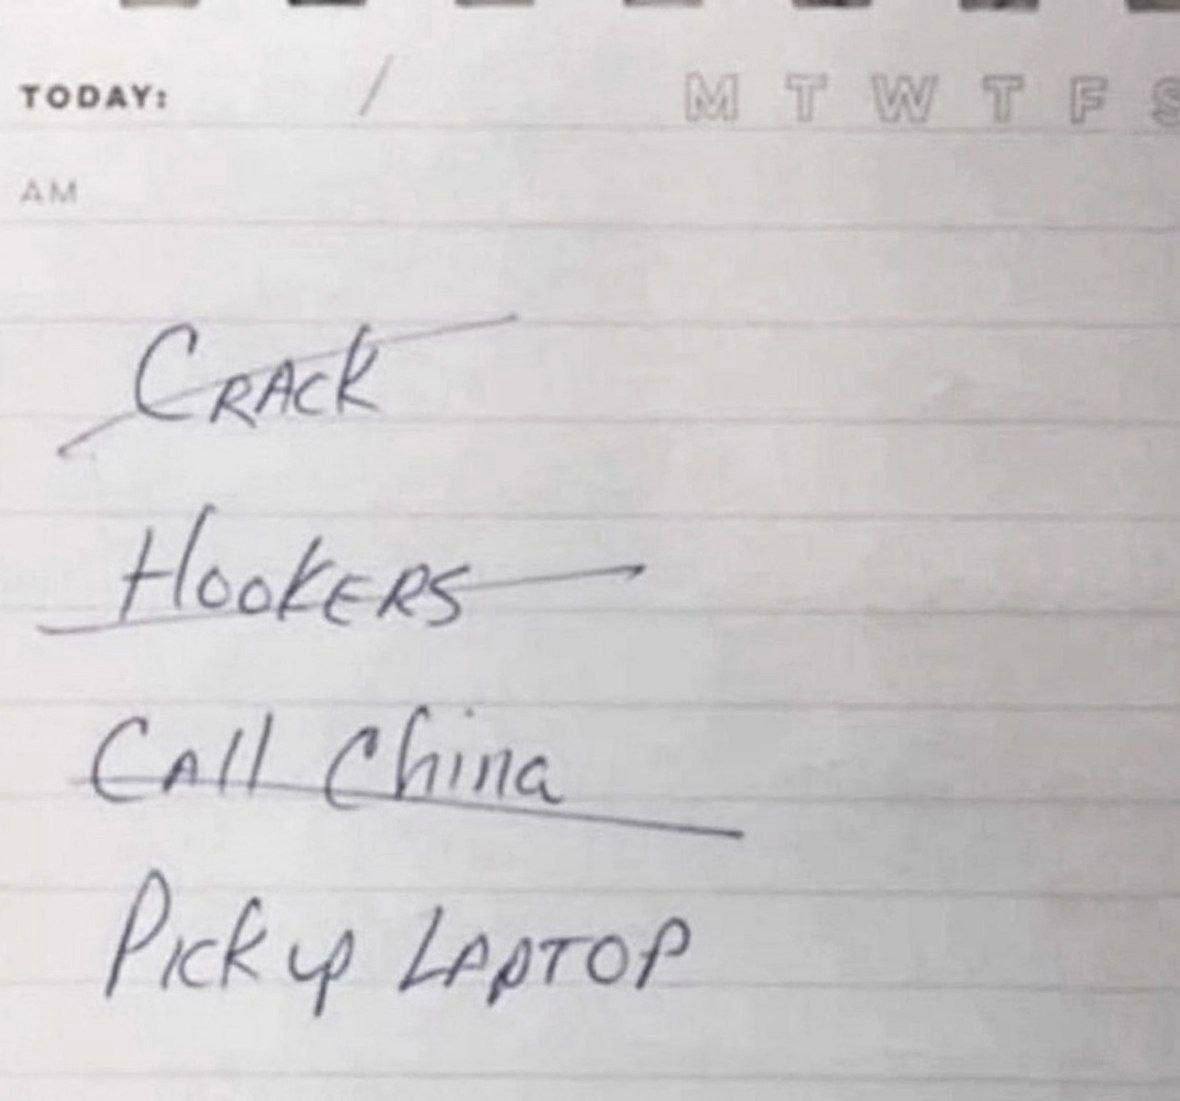 TODAY: / M T W T F S
AM
CRACK
HOOKERS
CAll China
Pick up LAPTOP